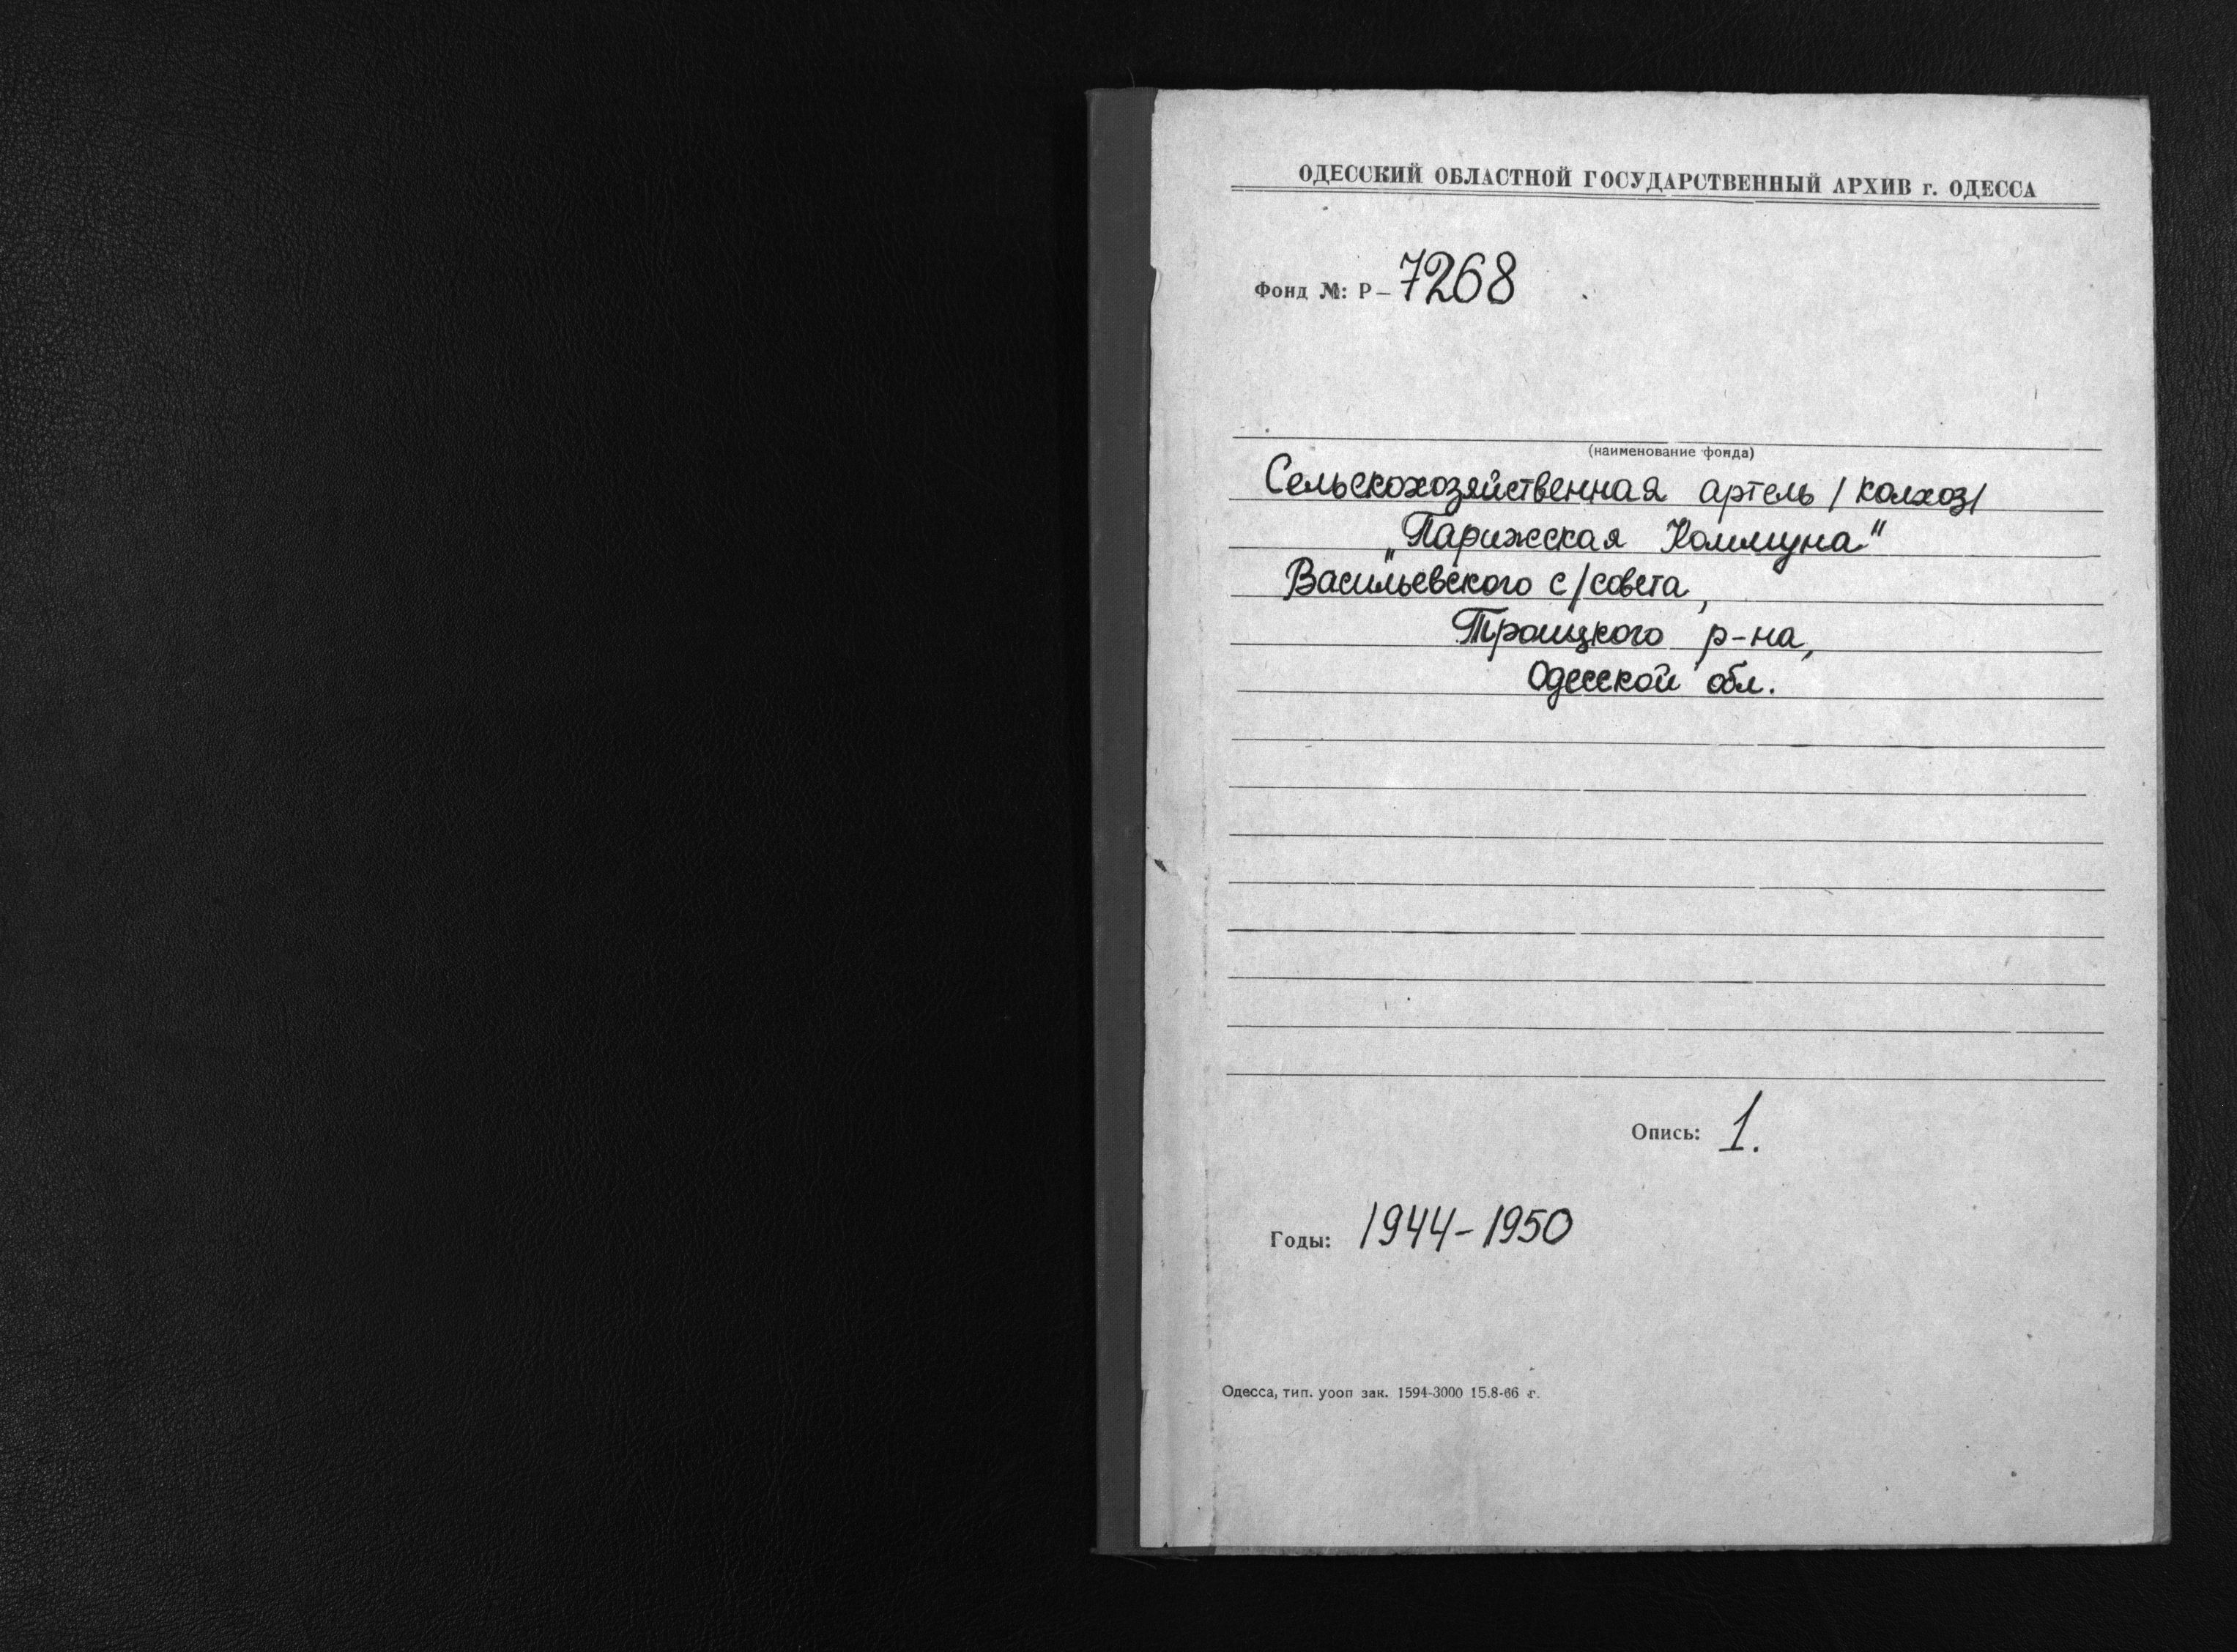 ОДЕССКИЙ ОБЛАСТНОЙ ГОСУДАРСТВЕННЫЙ АРХИВ г. ОДЕССА
Фонд №: Р–7268
(наименование фонда)
Сельскохозяйственная артель /колхоз/
„Парижская Коммуна"
Васильевского с/совета,
Троицкого р-на,
Одесской обл.
Опись: 1.
Годы: 1944-1950
Одесса, тип. уооп зак. 1594-3000 15.8-66 г.